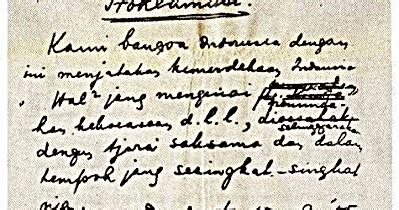 Proklamasi.
Kami bangsa Indonesia dengan
ini menjatakan kemerdekaan Indonesia
Hal² jang mengenai
pemindahan
kekoeasaan d.l.l.,
diselenggarakan
dengan tjara saksama dan dalam
tempoh jang sesingkat-singkat